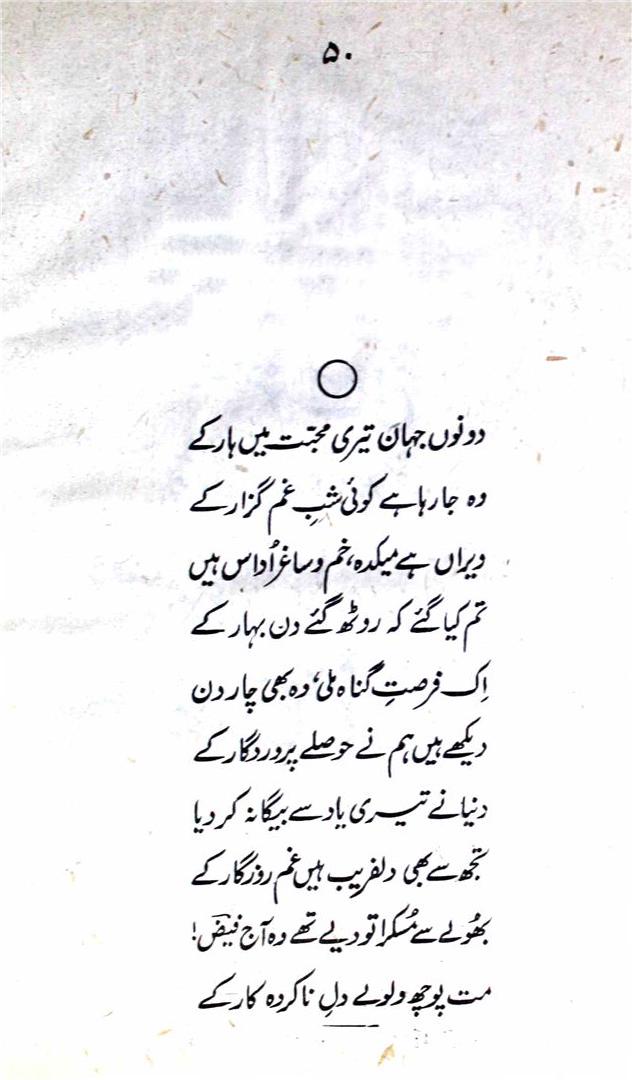 ۵۰
دونوں جہان تیری محبّت میں ہار کے
وہ جا رہا ہے کوئی شبِ غم گزار کے
ویراں ہے میکدہ، خم و ساغر اُداس ہیں
تم کیا گئے کہ روٹھ گئے دن بہار کے
اِک فرصتِ گناہ ملی، وہ بھی چار دن
دیکھے ہیں ہم نے حوصلے پروردگار کے
دنیا نے تیری یاد سے بیگانہ کر دیا
تجھ سے بھی دلفریب ہیں غم روزگار کے
بھُولے سے مُسکرا تو دیے تھے وہ آج فیضؔ!
مت پوچھ ولولے دلِ ناکردہ کار کے